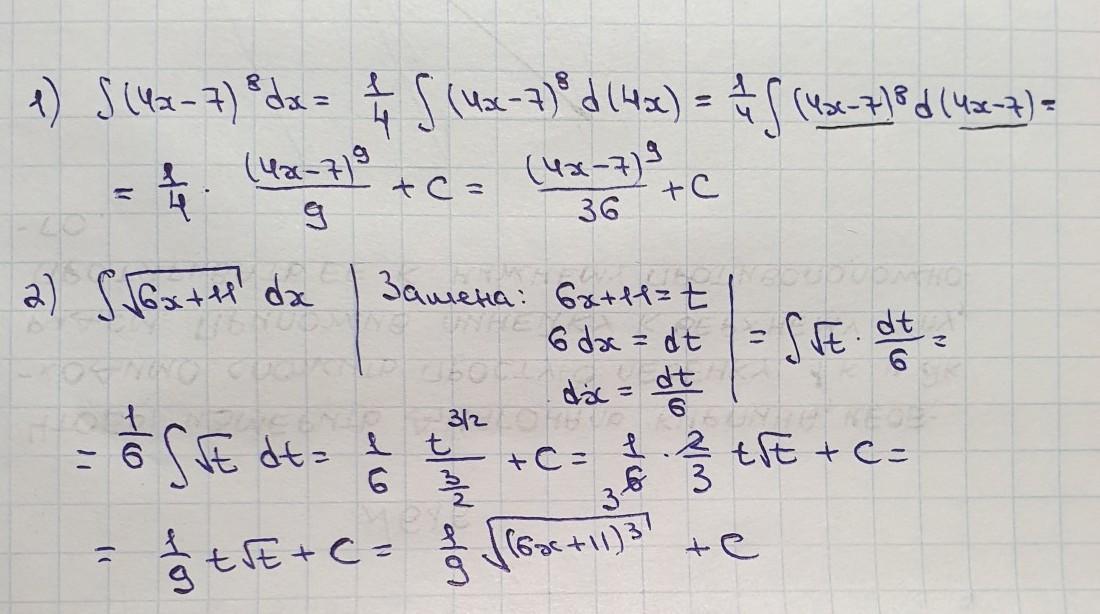 1) ∫(4x−7)⁸dx = 1/4 ∫(4x−7)⁸ d(4x) = 1/4 ∫(4x−7)⁸ d(4x−7) =
= 1/4 · (4x−7)⁹/9 + C = (4x−7)⁹/36 + C
2) ∫√(6x+11) dx | Замена: 6x+11=t
6 dx = dt
dx = dt/6 | = ∫√t · dt/6 =
= 1/6 ∫√t dt = 1/6 t^(3/2)/(3/2) + C = 1/6 · 2/3 t√t + C =
3
= 1/9 t√t + C = 1/9 √((6x+11)³) + C